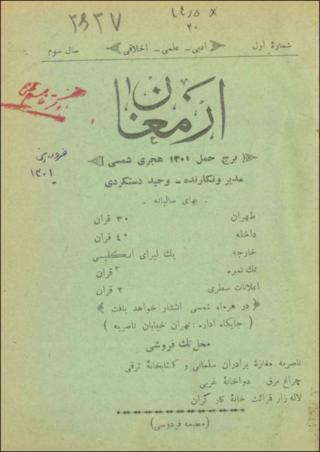 ۲۶۲۷
۱۴/۵ x ۲۰
شمارهٔ اول ادبی - علمی - اخلاقی سال سوم
ارمغان
برج حمل ۱۳۰۱ هجری شمسی
مدیر ونگارنده - وحید دستگردی
بهای سالیانه
طهران ۳۰ قران
داخله ۴۰ قران
خارجه یك لیرای انگلیسی
تك نمره ۳ قران
اعلانات سطری ۲ قران
( در هرماه شمسی انتشار خواهد یافت )
( جایگاه اداره : تهران خیابان ناصریه )
محل تك فروشی
ناصریه مغازهٔ برادران سلمانی و کتابخانهٔ ترقی
چراغ برق دواخانهٔ غربی
لاله زار قرائت خانهٔ کار گران
(مطبعه فردوسی)
فروردین
۱۳۰۱